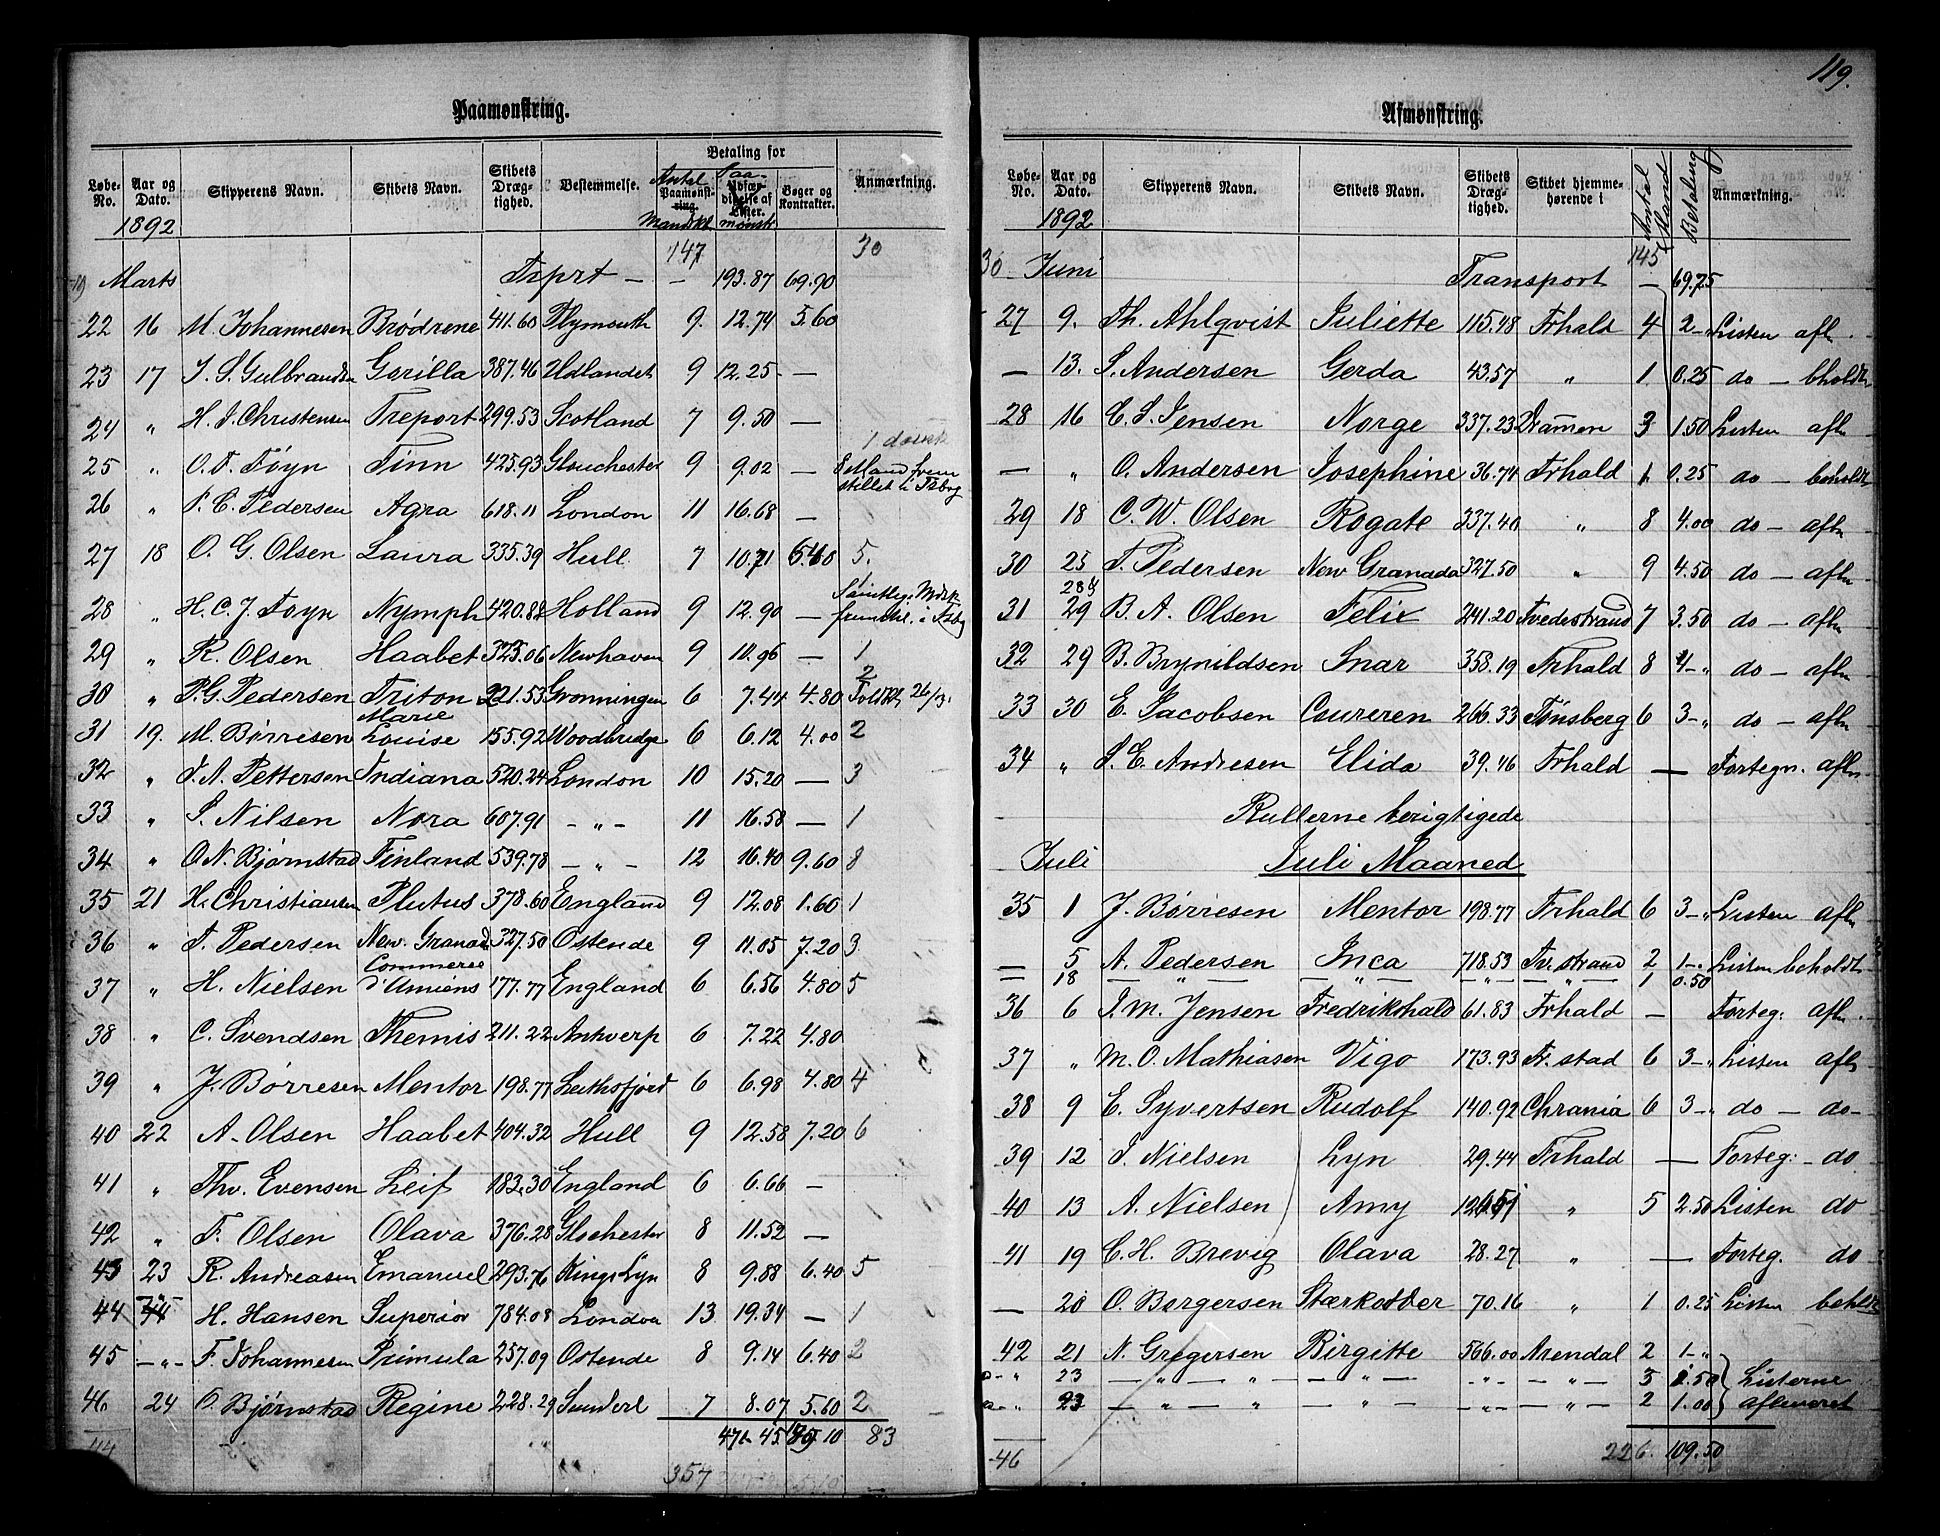 119.
Paamønstring.
Løbe-No. | Aar og Dato. | Skipperens Navn. | Skibets Navn. | Skibets Dræg-tighed. | Bestemmelse. | Betaling for | Anmærkning.
Antal Paamønst-ring. Mandsk | Paa-mønstr | Bøger og Kontrakter.
1892
147 30
Marts Trprt — — 193.87 69.90
22 16 M. Johannesen Brødrene 411.60 Plymouth 9. 12.74 5.60
23 17 J. S. Gulbrandsen Gorilla 387.46 Udlandet 9 12.25 —
24 " H. J. Christensen Treport 299.53 Scotland 7 9.50 —
25 " O. F. Føyn Finn 425.93 Glouchester 9 9.02 — 1 dansk
26 " P. C. Pedersen Agra 618.11 London 11 16.68 —
27 18 O. G. Olsen Laura 335.39 Hull 7 10.71 5.
28 " H. C. J. Foyn Nymph 420.88 Holland 9 12.90 —
29 " R. Olsen Haabet 323.06 Newhaven 9 11.96 — 1
30 " P. G. Pedersen Triton 221.53 Gronningen 6 7.44 4.80 2
31 19. M. Børresen Marie Louise 155.92 Woodbridge 6 6.12 4.00 2
32 " F. A. Pettersen Indiana 520.24 London 10 15.20 — 3
33 " S. Nilsen Nora 607.91 — " — 11 16.58 — 1
34 " O. N. Bjørnstad Finland 539.78 — " — 12 16.40 9.60 8
35 21 H. Christiansen Plutus 378.60 England 9 12.08 1.60 1
36 " F. Pedersen New. Granad. 327.50 Ostende 9 11.05 7.20 3
37 " H. Nielsen Commerce d'Amiens 177.77 England 6 6.56 4.80 5
38 " C. Svendsen Themis 211.22 Antverp 6 7.22 4.80
39 " J. Børresen Mentor 198.77 Leithsfjord 6 6.98 4.80 4
40 22 A. Olsen Haabet 404.32 Hull 9 12.58 7.20 6
41 " Thv. Evensen Leif 183.30 England 6 6.66 —
42 " F. Olsen Olava 376.28 Glochester 8 11.52 —
43 23 R. Andreasen Emanuel 293.76 Kings Lyn 8 9.88 6.40 5
44 H. Hansen Superior 784.08 London 13 19.34 — 1
45 — " — F. Johannesen Primula 257.09 Ostende 8 9.14 6.40 2
46 24 O. Bjørnstad Regine 228.29 Sunderl 7 8.07 5.60 2
45 83
357
Afmønstring.
Løbe-No. | Aar og Dato. | Skipperens Navn. | Skibets Navn. | Skibets Dræg-tighed. | Skibet hjemme-hørende i | Antal Mand | Betaling | Anmærkning.
1892
145
30 Juni Transport — 69.75
27 9. Th. Ahlqvist Juliette 115.48 Frhald 4 2 — " Listen afl.
— 13. S. Andersen Gerda 43.57 " 1 0.25 do — bholdt
28 16 C. S. Jensen Norge 337.23 Dramen 3 1.50 Listen afln
— " O. Andersen Josephine 36.74 Frhald 1 0.25 do — beholdt
29 18 C. W. Olsen Rogate 337.40 " 8 4.00 do — afln
30 25 F. Pedersen New Granada 327.50 " 9 4.50 do — afln
31 28 & 29 B. A. Olsen Felix 241.20 Tvedestrand 7 3.50 do — afln
32 29 B. Brynildsen Snar 358.19 Frhald 8 4 — " do — afln
33 30 E. Jacobsen Coureren 266.33 Tønsberg 6 3 — " do — afln
34 " S. E. Andresen Elida 39.46 Frhald — Fortegn. afln
Rullerne berigtigede
Juli Juli Maaned
35 1 J. Børresen Mentor 198.77 Frhald 6 3 — " Listen afln
— 5 A. Pedersen Inca 718.53 Tv. strand 2 1 — . Listen beholdt
— 18 — " — " — " — — " — — " — 1 0.50
36 6 J. M. Jensen Fredrikshald 61.83 Frhald — Forteg: afln
37 " M. O. Mathiasen Vigo 173.93 Fr. stad 6 3 — " Listen afln
38 9 E. Syvertsen Rudolf 140.92 Chrania 6 3 — " do — do —
39 12 J. Nielsen Lyn 29.44 Frhald — Forteg: — do
40 13 A. Nielsen Amy " 5 2.50 Listen do
41 19 C. H. Brevig Olava 28.27 " — Forteg. do
— 20 O. Borgersen Stærkodder 70.16 " 1 0.25 Listen beholdt
42 21 N. Gregersen Birgitte 566.00 Arendal 2 1 — "
" 23 — " — " — " — — " — — " — .50 Listerne
" 23 — " — " — " — — " — — " — 2 1.00 afleveret
46 226. 109.50